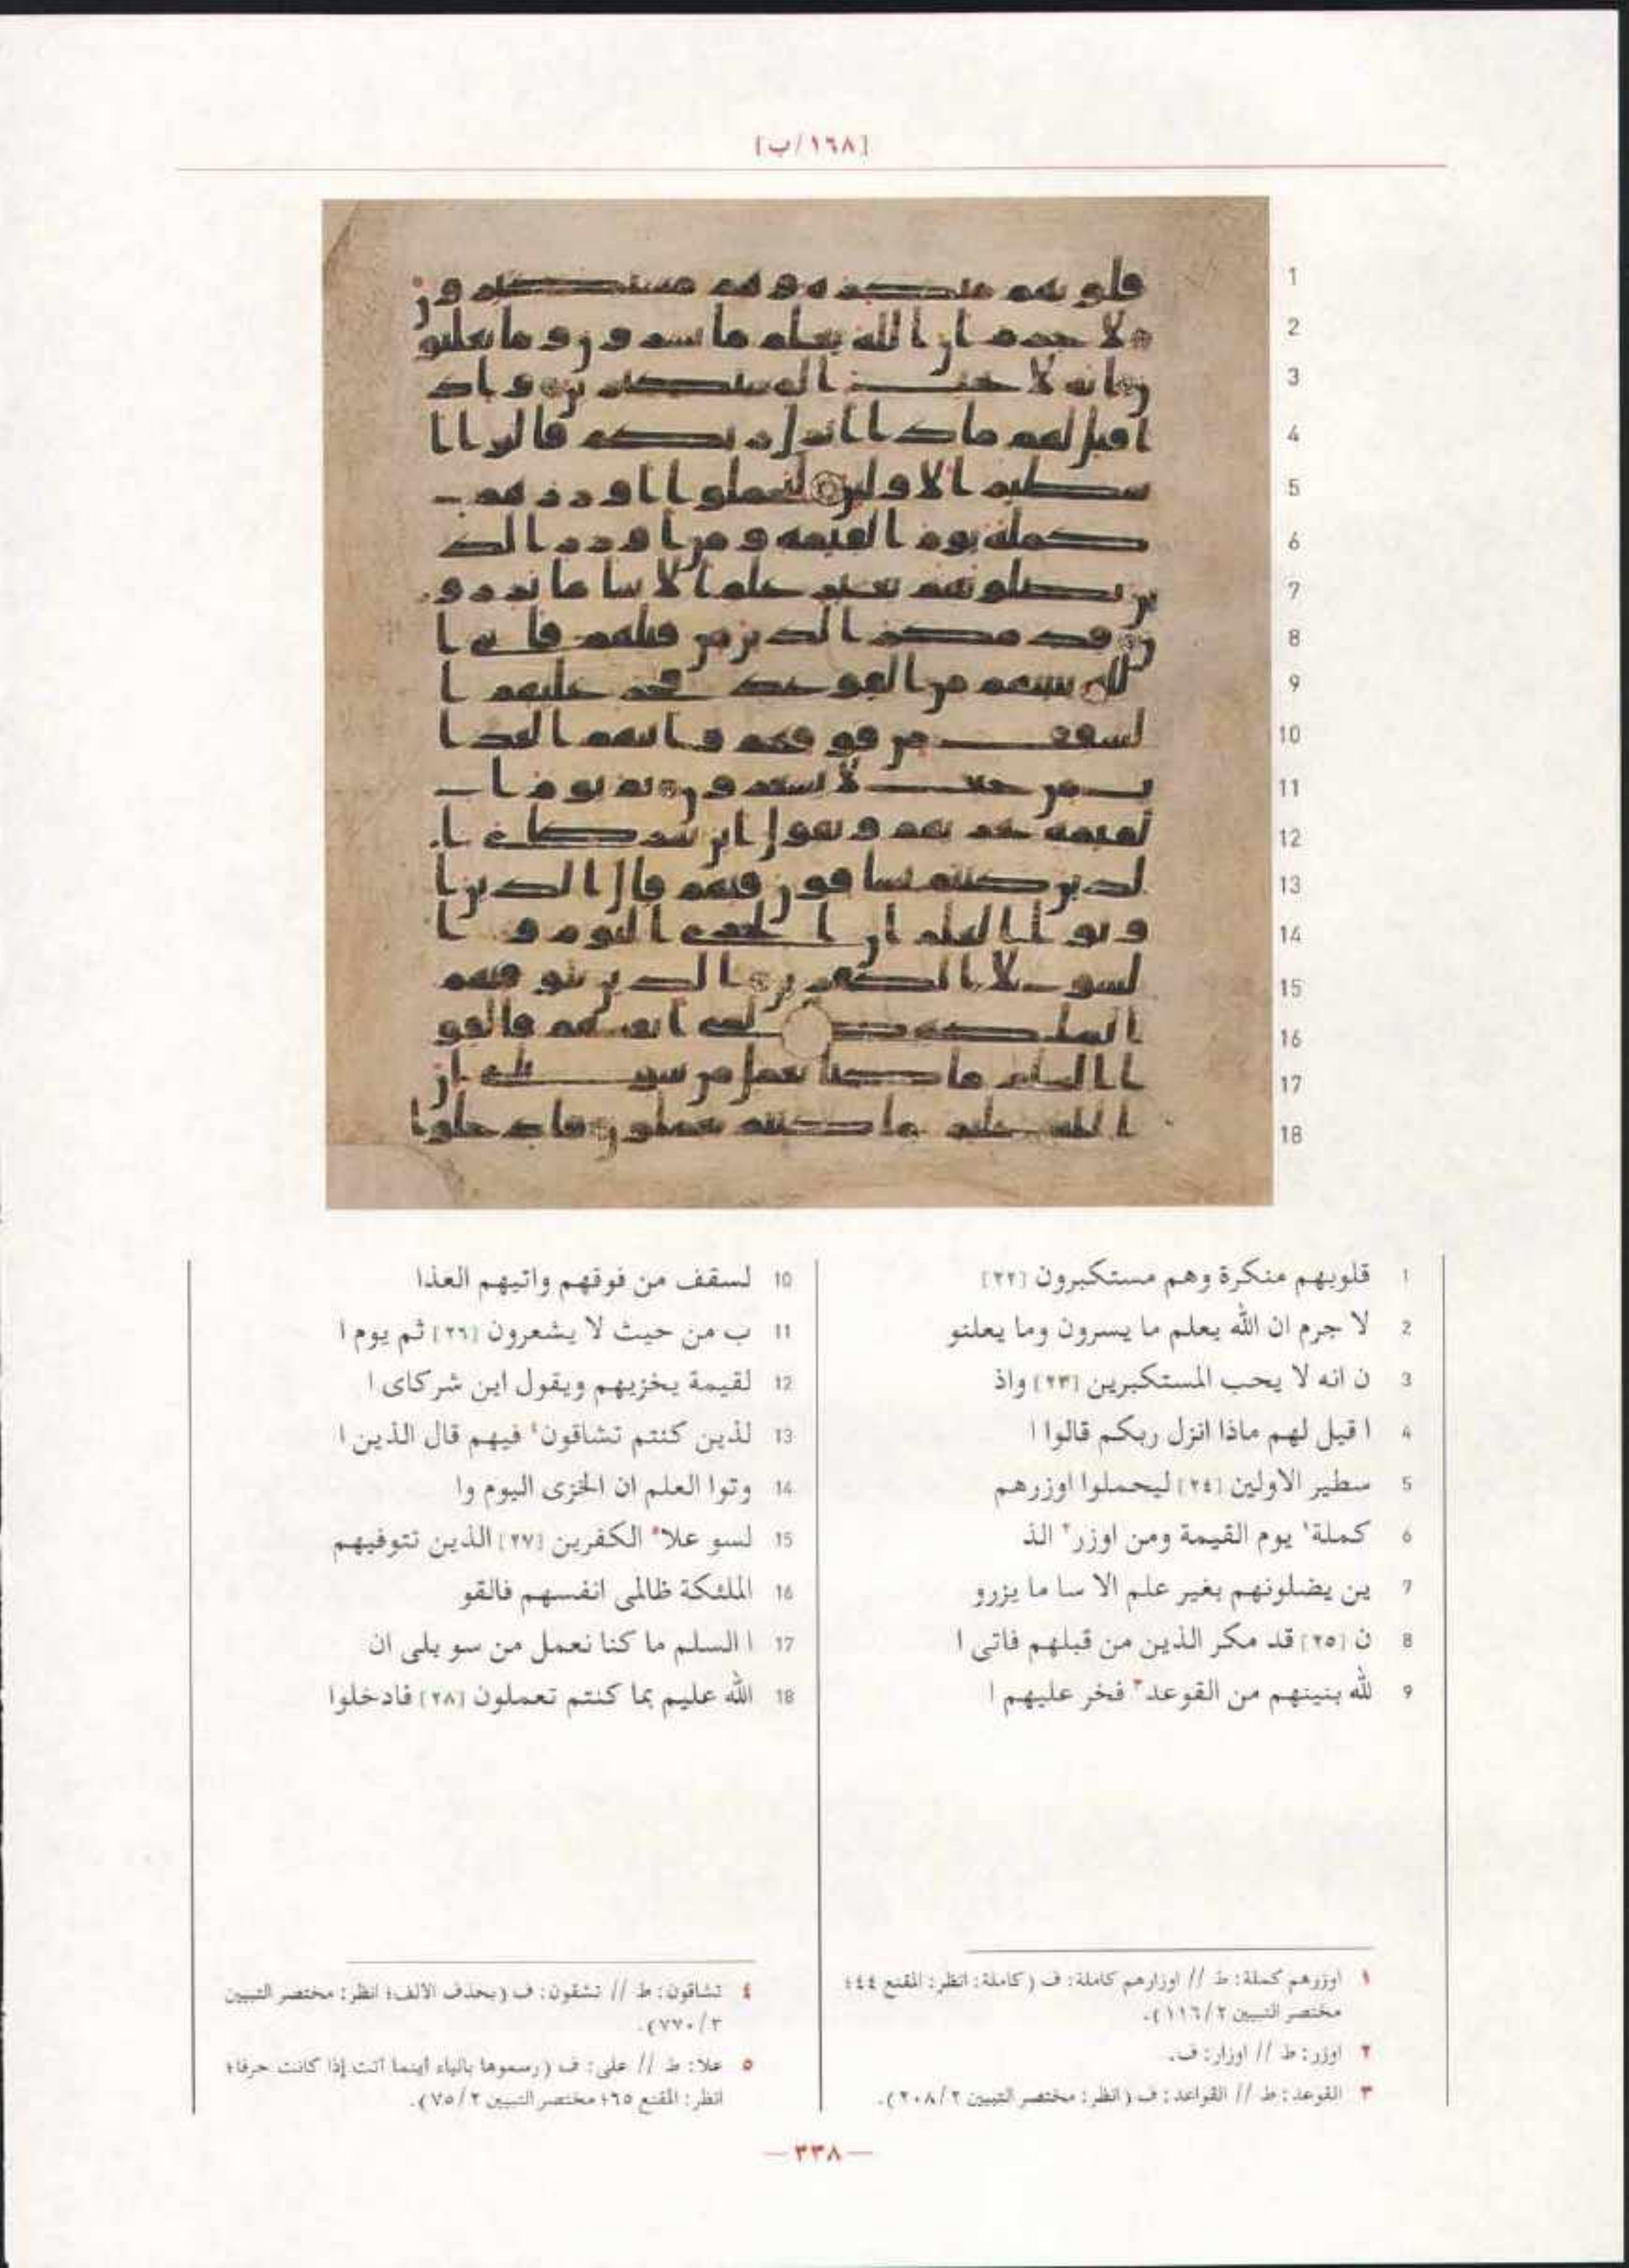 [١٦٨/ب]
1 قلوبهم منكرة وهم مستكبرون [٢٢]
2 لا جرم ان الله يعلم ما يسرون وما يعلنو
3 ن انه لا يحب المستكبرين [٢٣] واذ
4 ا قيل لهم ماذا انزل ربكم قالوا ا
5 سطير الاولين [٢٤] ليحملوا اوزرهم
6 كملة١ يوم القيمة ومن اوزر٢ الذ
7 ين يضلونهم بغير علم الا سا ما يزرو
8 ن [٢٥] قد مكر الذين من قبلهم فاتى ا
9 لله بنينهم من القوعد٣ فخر عليهم ا
10 لسقف من فوقهم واتيهم العذا
11 ب من حيث لا يشعرون [٢٦] ثم يوم ا
12 لقيمة يخزيهم ويقول اين شركاى ا
13 لذين كنتم تشاقون٤ فيهم قال الذين ا
14 وتوا العلم ان الخزى اليوم وا
15 لسو علا٥ الكفرين [٢٧] الذين تتوفيهم
16 الملئكة ظالمى انفسهم فالقو
17 ا السلم ما كنا نعمل من سو بلى ان
18 الله عليم بما كنتم تعملون [٢٨] فادخلوا
١ اوزرهم كملة: ط // اوزارهم كاملة: ف (كاملة: انظر: المقنع ٤٤؛
مختصر التبيين ٢/١١٦).
٢ اوزر: ط // اوزار: ف.
٣ القوعد: ط // القواعد: ف (انظر: مختصر التبيين ٢/٢٠٨).
٤ تشاقون: ط // تشقون: ف (بحذف الالف؛ انظر: مختصر التبيين
٣/٧٧٠).
٥ علا: ط // على: ف (رسموها بالياء أينما أتت إذا كانت حرفا؛
انظر: المقنع ٦٥؛ مختصر التبيين ٢/٧٥).
— ٣٣٨ —